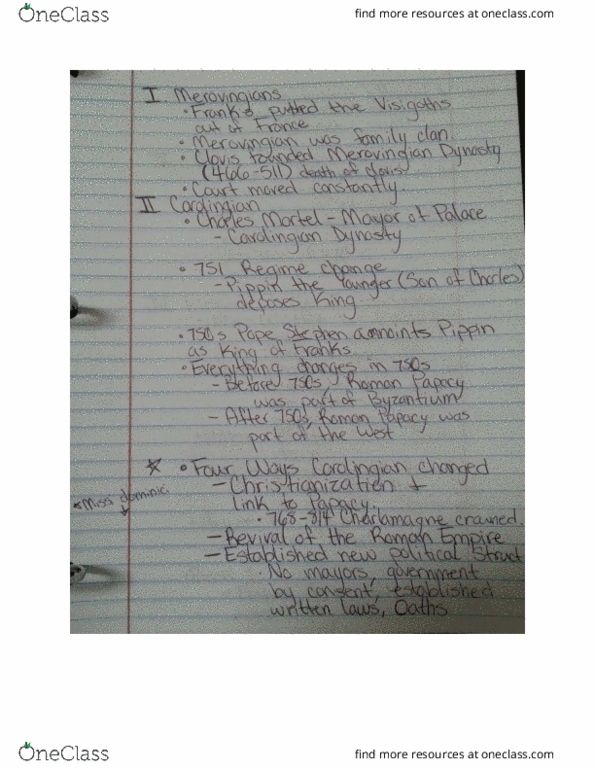 OneClass
find more resources at oneclass.com
I Merovingians
• Franks putted the Visigoths
out of France
• Merovingian was family clan
• Clovis founded Merovingian Dynasty
(466-511) death of clovis
• Court moved constantly
II Carolingian
• Charles Martel - Mayor of Palace
- Carolingian Dynasty
• 751 Regime change
- Pippin the Younger (Son of Charles)
deposes King
• 750s Pope Stephen annoints Pippin
as King of Franks
• Everything changes in 750s
- Before 750s, Roman Papacy
was part of Byzantium
- After 750s, Roman Papacy was
part of the West
• Four Ways Carolingian changed
- Christianization +
link to Papacy
• Missi dominici
• 768-814 Charlamagne crowned.
- Revival of the Roman Empire
- Established new political Struct
• No mayors, government
by consent, established
written laws, Oaths
OneClass
find more resources at oneclass.com